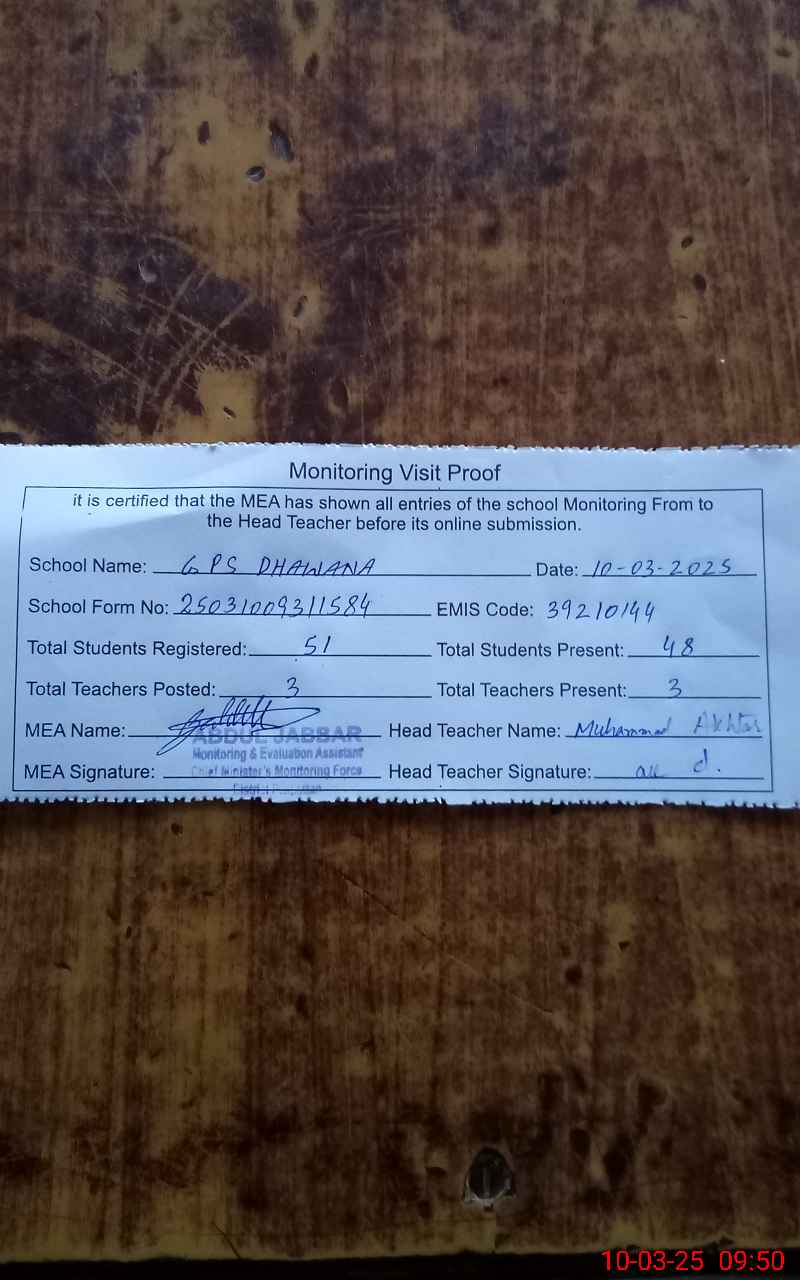 Monitoring Visit Proof
it is certified that the MEA has shown all entries of the school Monitoring From to
the Head Teacher before its online submission.
School Name: GPS DHAWANA Date: 10-03-2025
School Form No: 25031009311584 EMIS Code: 39210144
Total Students Registered: 51 Total Students Present: 48
Total Teachers Posted: 3 Total Teachers Present: 3
MEA Name: Head Teacher Name: Muhammad Akhtar
ABDUL JABBAR
Monitoring & Evaluation Assistant
MEA Signature: Chief Minister's Monitoring Force Head Teacher Signature:
District
10-03-25 09:50